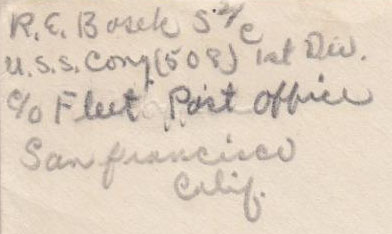 R.E. Bosek S 2/c
U.S.S. Cony (508) 1st Div.
c/o Fleet Post Office
San francisco
Calif.